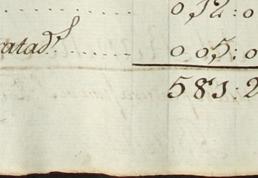 . . . . . . . . . 0,12:0
ratad.ˢ . . . . . . 0 05:0
581:2